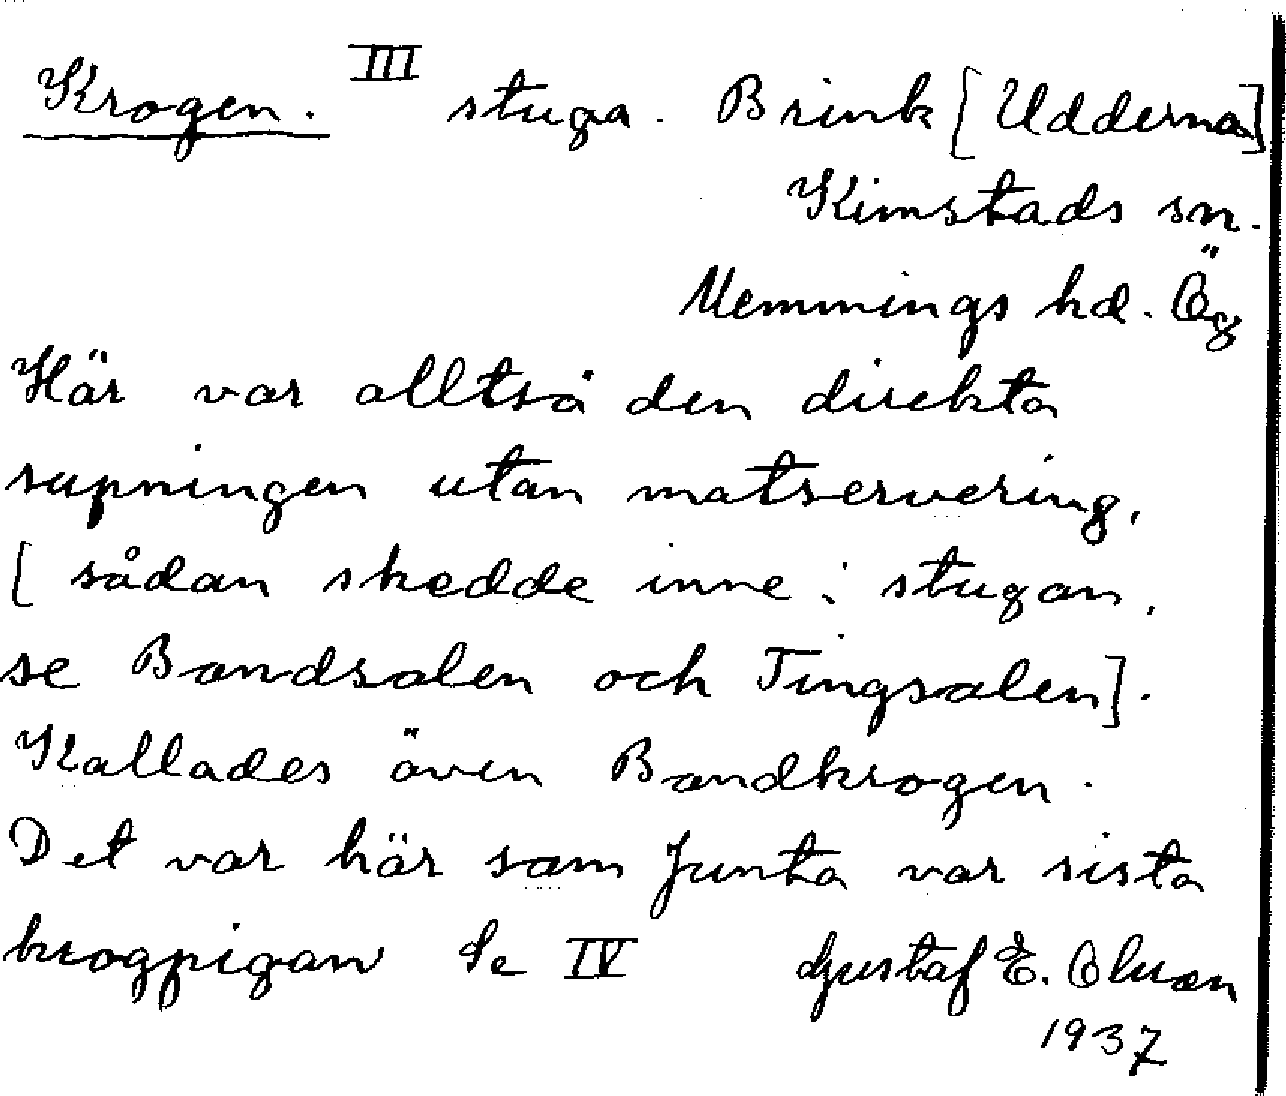 Krogen. III stuga. Brink [Udderna]
Kimstads sn.
Memmings hd. Ög
Här var alltså den direkta
supningen utan matservering,
[ sådan skedde inne i stugan,
se Bandsalen och Tingsalen].
Kallades även Bandkrogen.
Det var här som Junta var sista
krogpigan Se IV Gustaf E.
1937